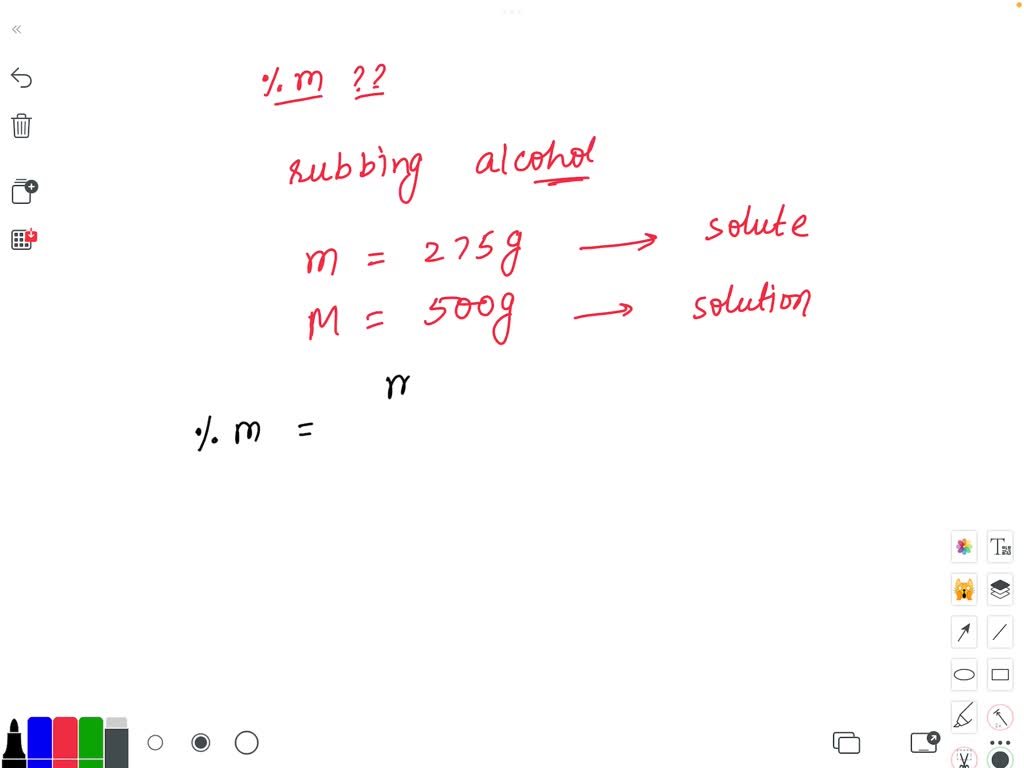 % m ??
rubbing alcohol
m = 275g → solute
M = 500g → solution
m
% m =